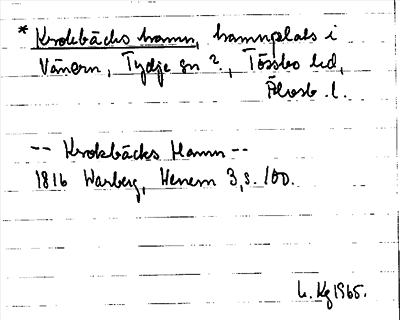 * Krokbäcks hamn, hamnplats i
Vänern, Tydje sn ?, Tössbo hd,
Älvsb. l.
-- Krokbäcks Hamn --
1816 Warberg, Wenern 3, s. 100.
L. Kg 1965.